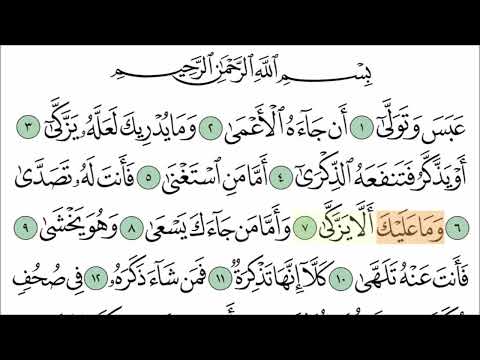 بِسْمِ اللَّهِ الرَّحْمَٰنِ الرَّحِيمِ
عَبَسَ وَتَوَلَّىٰٓ ١ أَن جَآءَهُ الْأَعْمَىٰ ٢ وَمَا يُدْرِيكَ لَعَلَّهُۥ يَزَّكَّىٰٓ ٣
أَوْ يَذَّكَّرُ فَتَنفَعَهُ الذِّكْرَىٰٓ ٤ أَمَّا مَنِ اسْتَغْنَىٰ ٥ فَأَنتَ لَهُۥ تَصَدَّىٰ
٦ وَمَا عَلَيْكَ أَلَّا يَزَّكَّىٰ ٧ وَأَمَّا مَن جَآءَكَ يَسْعَىٰ ٨ وَهُوَ يَخْشَىٰ ٩
فَأَنتَ عَنْهُ تَلَهَّىٰ ١٠ كَلَّآ إِنَّهَا تَذْكِرَةٌ ١١ فَمَن شَآءَ ذَكَرَهُۥ ١٢ فِى صُحُفٍ